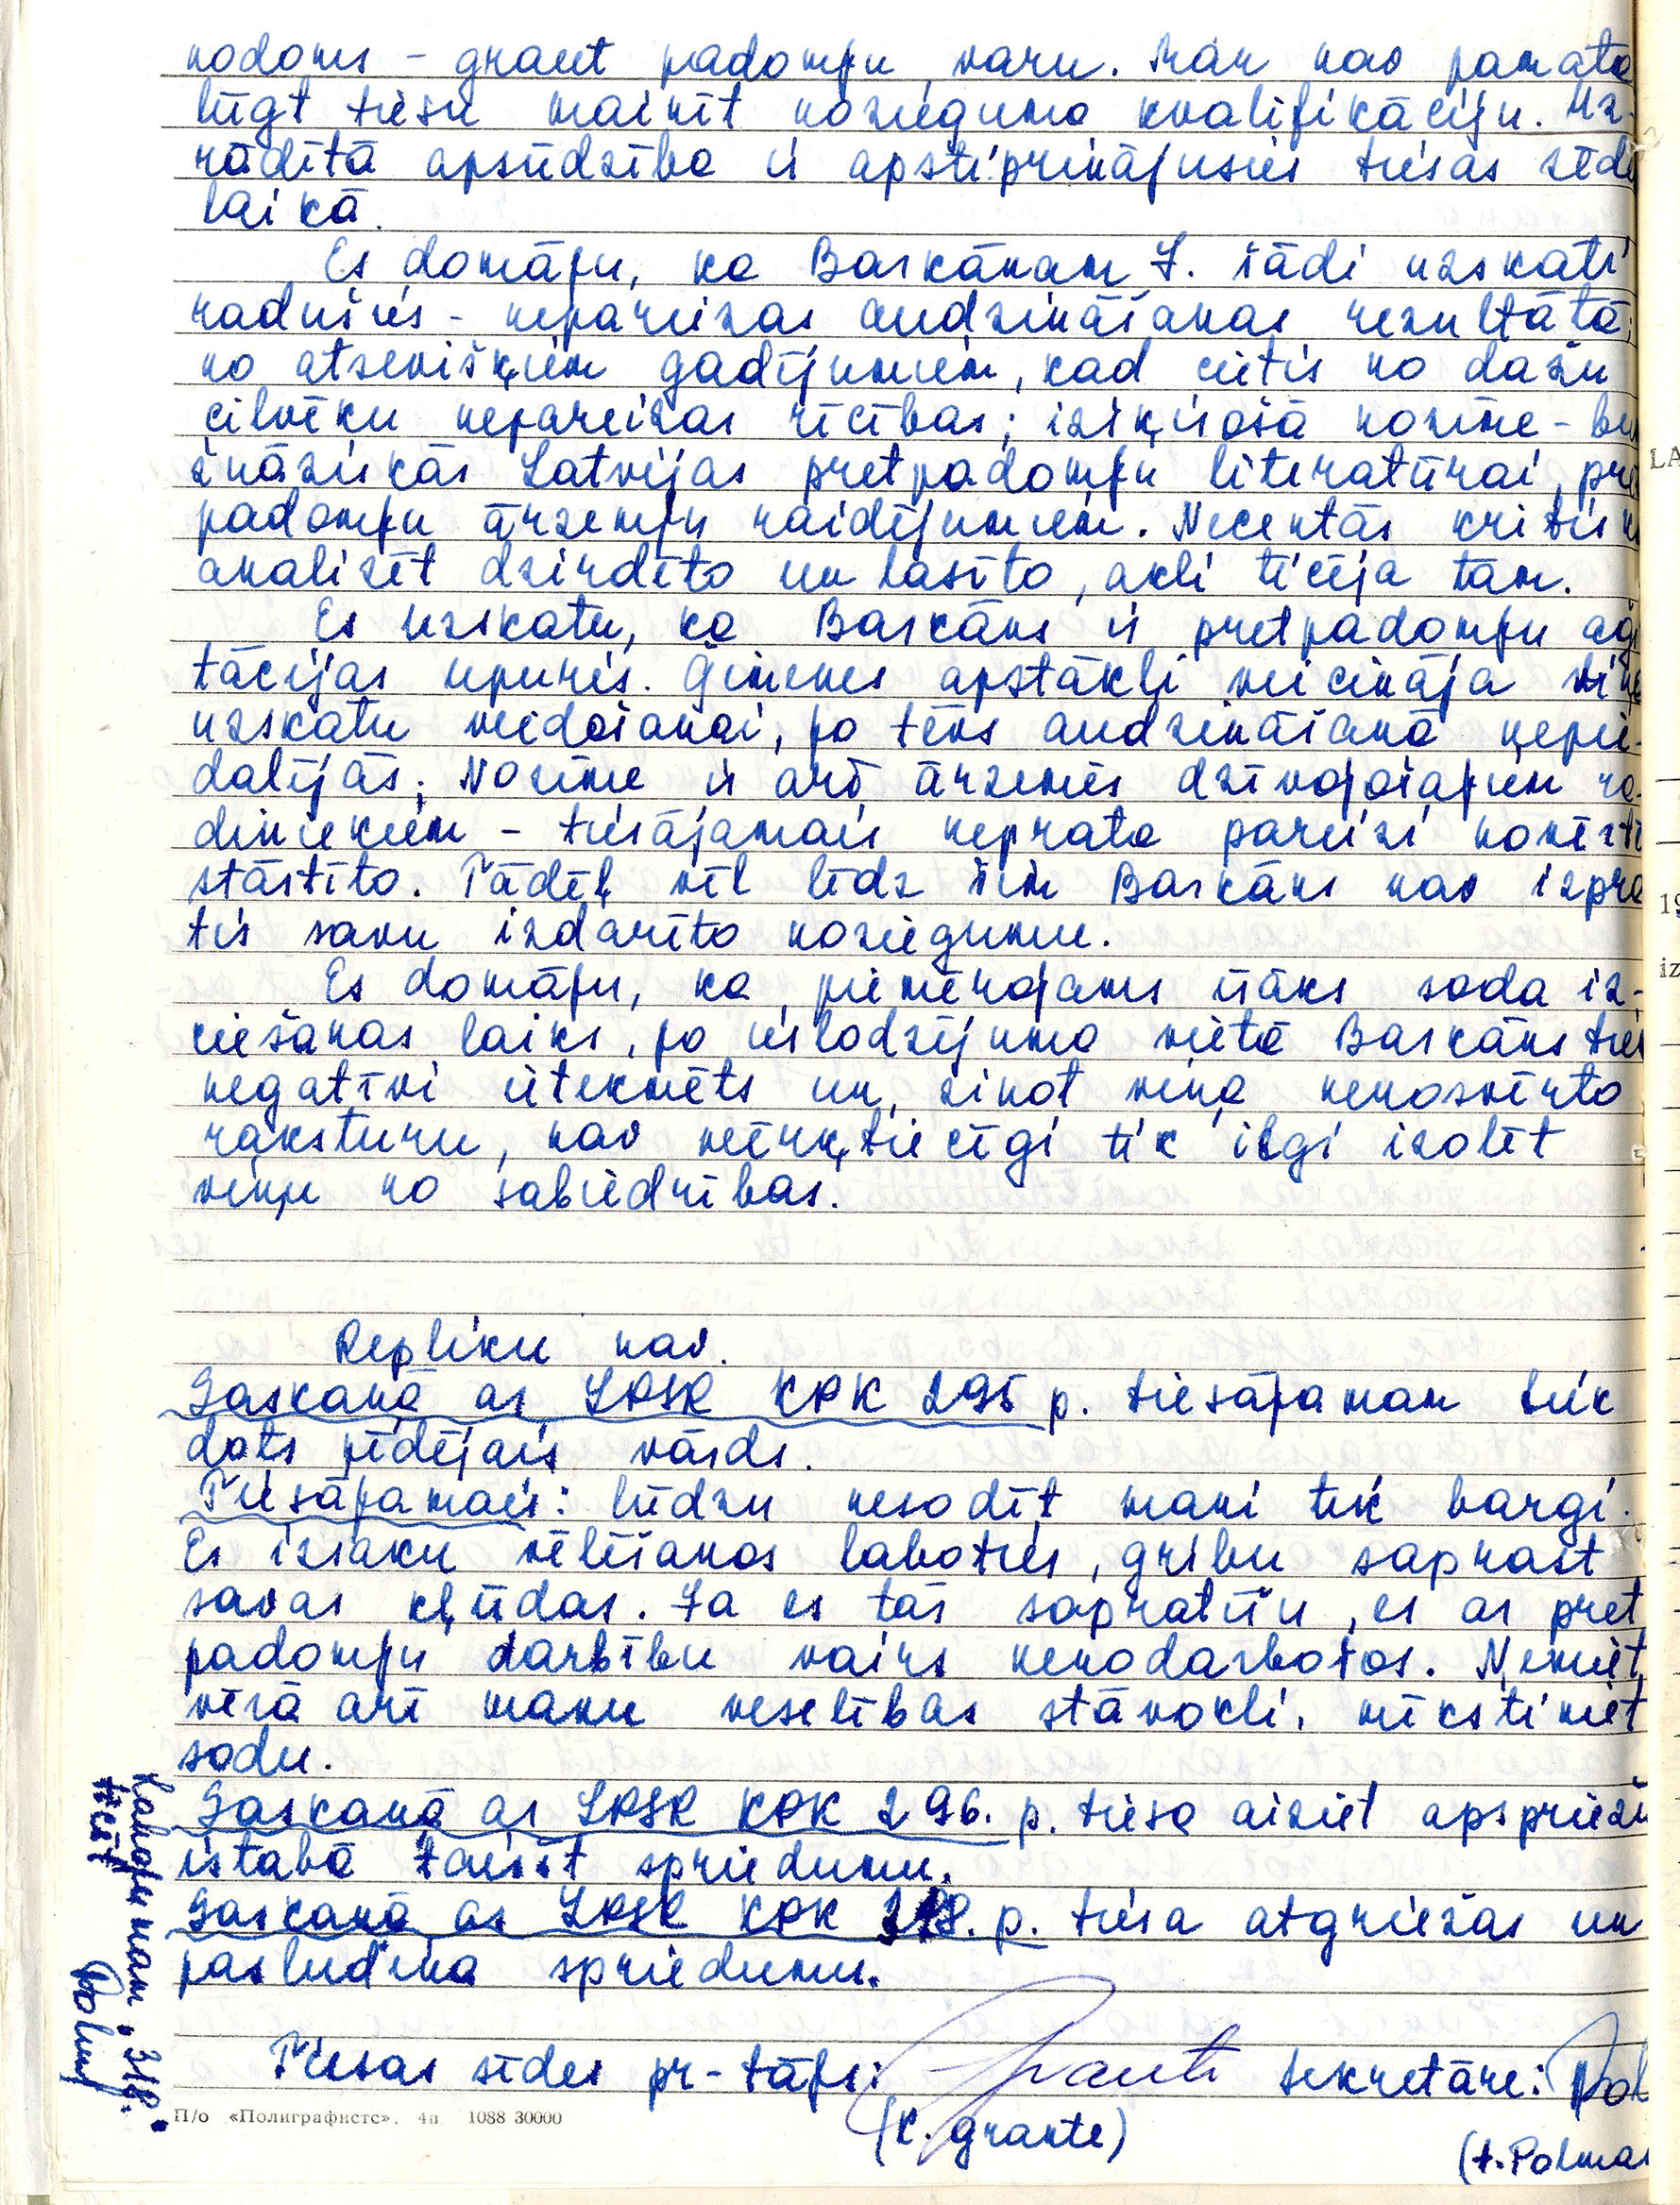 nodoms - graut padomju varu. Man nav pamata
lūgt tiesu mainīt nozieguma kvalifikāciju. Uz-
rādītā apsūdzība ir apstiprinājusies tiesas sēd
laikā.
Es domāju, ka Baskānam J. šādi uzskati
radušies - nepareizas audzināšanas rezultātā;
no atsevišķiem gadījumiem, kad cietis no dažu
cilvēku nepareizas rīcības; izšķirošā nozīme - bur
žuāziskās Latvijas pretpadomju literatūrai, pre
padomju ārzemju raidījumiem. Necentās kritisk
analizēt dzirdēto un lasīto, akli ticēja tam.
Es uzskatu, ka Baskāns ir pretpadomju aģi
tācijas upuris. Ģimenes apstākļi veicināja viņa
uzskatu veidošanai, jo tēvs audzināšanā nepie-
dalījās; Nozīme ir arī ārzemēs dzīvojošajiem ra-
diniekiem - tiesājamais neprata pareizi novērtē
stāstīto. Tādēļ vēl līdz šim Baskāns nav izpra
tis savu izdarīto noziegumu.
Es domāju, ka piemērojams īsāks soda iz-
ciešanas laiks, jo ieslodzījuma vietā Baskāns tiek
negatīvi ietekmēts un, zinot viņa nenosvērto
raksturu, nav mērķtiecīgi tik ilgi izolēt
viņu no sabiedrības.
Repliku nav.
Saskaņā ar LPSR KPK 295 p. tiesājamam tiek
dots pēdējais vārds.
Tiesājamais: lūdzu nesodīt mani tik bargi.
Es izsaku vēlēšanos laboties, gribu saprast
savas kļūdas. Ja es tās sapratīšu, es ar pret
padomju darbību vairs nenodarbošos. Ņemiet
vērā arī manu veselības stāvokli, mīkstiniet
sodu.
Saskaņā ar LPSR KPK 296. p. tiesa aiziet apspriežu
istabā taisīt spriedumu.
Saskaņā ar LPSR KPK 318. p. tiesa atgriežas un
pasludina spriedumu.
Labojumam "318."
ticēt
Tiesas sēdes pr-tājs: Grante sekretāre: Pol
(K. Grante)
П/о «Полиграфистс». 4п 1088 30000
LA
19
iz